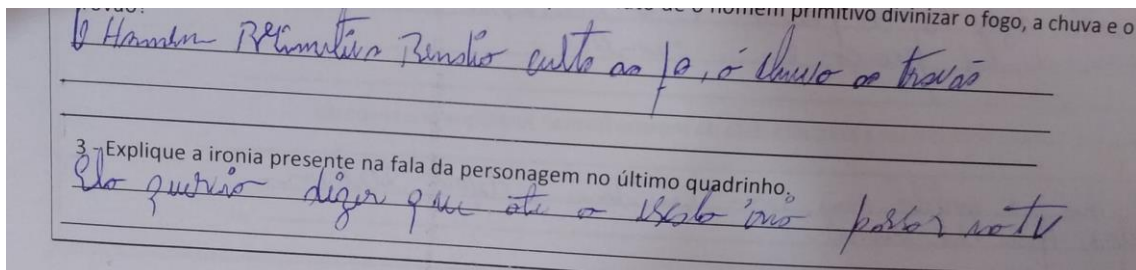 de o homem primitivo divinizar o fogo, a chuva e o
O Homem Primitivo Rendia culto ao fo, á chuva ao trovão
3 - Explique a ironia presente na fala da personagem no último quadrinho.
Ela queria dizer que ate o passar na tv